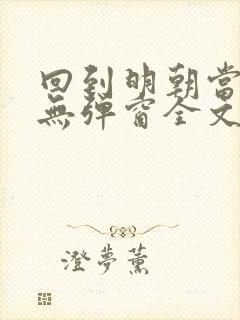 回到明朝當
無彈窗全文
澄夢薰